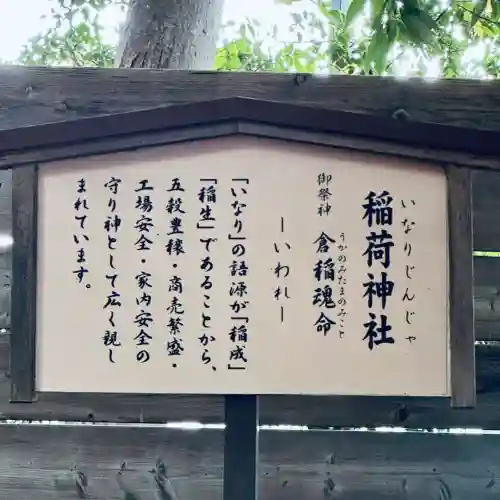 いなりじんじゃ
稲荷神社
うかのみたまのみこと
御祭神 倉稲魂命
―いわれ―
「いなり」の語源が「稲成」
「稲生」であることから、
五穀豊穣・商売繁盛・
工場安全・家内安全の
守り神として広く親し
まれています。